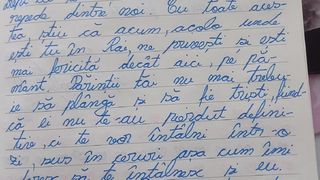 repede dintre noi. Cu toate aces-
tea, știu că acum, acolo unde
ești tu în Rai, ne privești și ești
mai fericită decât aici, pe pă-
mânt. Părinții tăi nu mai trebu-
ie să plângă și să fie triști, fiind-
că ei nu te-au pierdut defini-
tiv, ci te vor întâlni într-o
zi, sus în ceruri așa cum îmi
să te întâlnesc și eu.